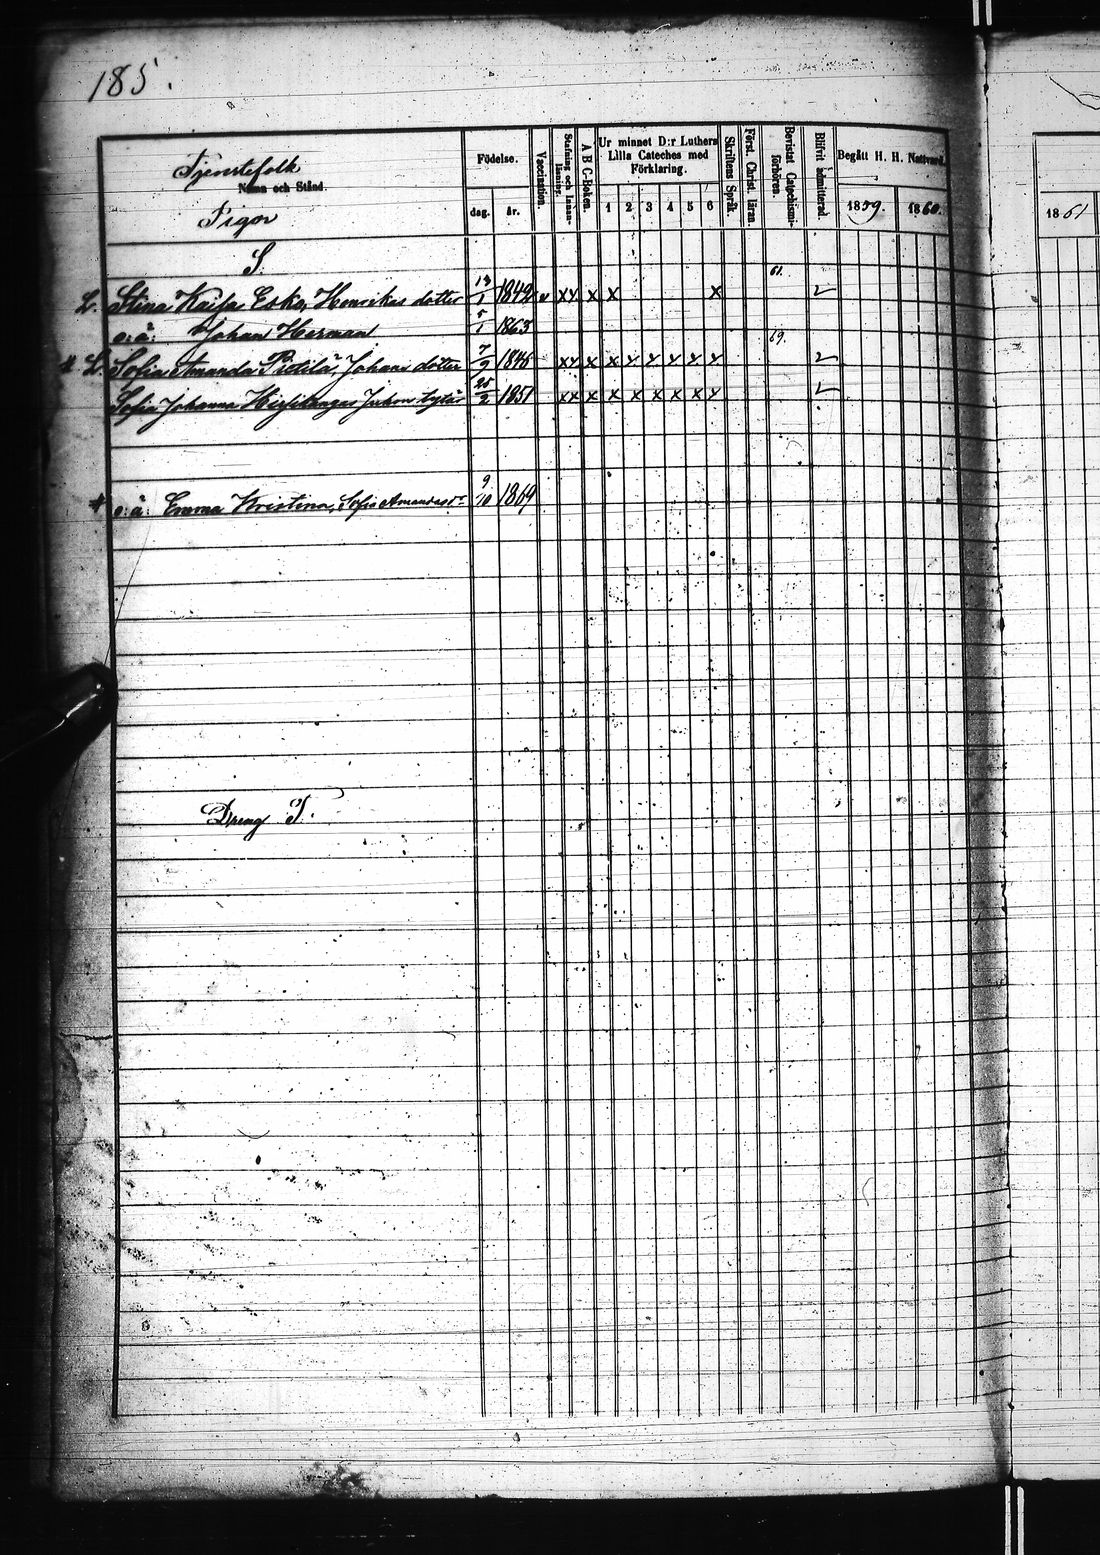 185.
Tjenstefolk
Namn och Stånd.
Pigor
Födelse.
dag. år.
Vaccination.
Stafning och Innanläsning.
A B C-Boken.
Ur minnet D:r Luthers Lilla Cateches med Förklaring.
1 2 3 4 5 6
Skriftens Språk.
Först. Christ. läran.
Bevistat Catechismiförhören.
Blifvit admitterad.
Begått H. H. Nattvard.
1859. 1860. 1861
S.
61.
L. Stina Kaisa Esko, Henriks dotter 13/1 1842 v xx x x x
o. ä. Johan Herman 5/1 1863
69.
# L. Sofia Amanda Pietilä, Johans dotter 7/9 1848 xx x x x x x x x
Sofia Johanna Juhon tytär 25/2 1851 xx x x x x x x x
# o. ä. Emma Kristina, Sofia Amandasdr 9/10 1869
Dreng T.